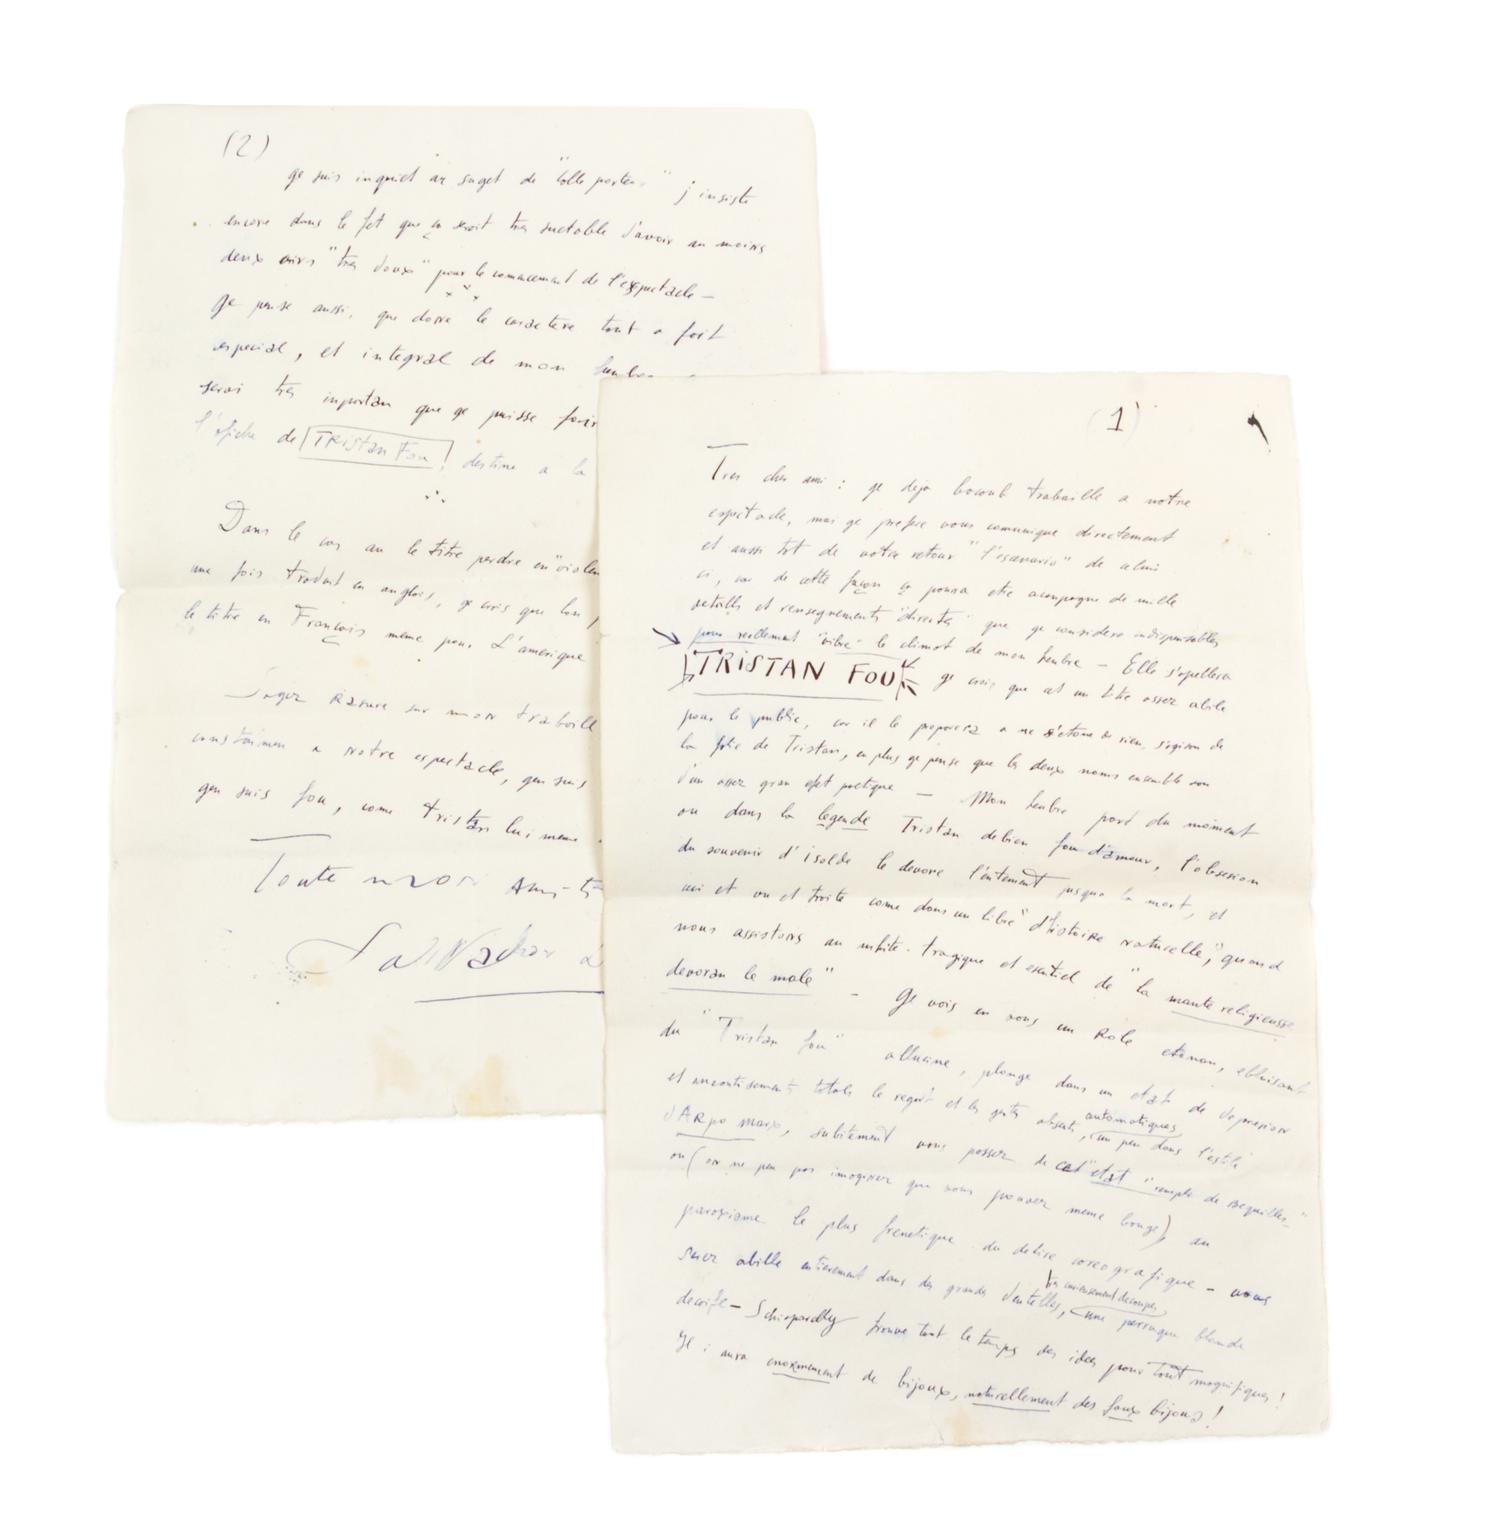 (2)
ge suis inquiet au suget de "Colle porter" j insiste
encore dans le fet que ça serait tres suetable d'avoir au moins
deux airs "tres doux" pour le comancement de l'espectacle —
ge panse aussi, que done le caractere tout a fait
especial, et integral de mon
serai tres inportan que ge puisse fair
l'afiche de TRistan Fou, destine a la
Dans le cas au le titre perdre en "violen
une fois traduit en anglais, ge crois que lon
le titre en Français meme pour L'amerique
Soyez Rasure sur mon traballe
constamen a notre espectacle, gen suis
gen suis fou, come tristan lui meme
Toute mon Ami-ti
Salvador
(1)
Tres cher ami : ge deja bocoub traballe a notre
espectacle, mai ge prefere vous comunique directement
et aussi tot de votre retour "l'escenario" de celui
ci, car de cette façon ça poura etre acompagne de mille
details et rensegnements "directes" que ge considere indispensables
pour reellement "vibre" le climat de mon heubre — Elle s'apellera
TRISTAN FOU ge crois que cet un titre assez abile
pour le publie, car il le preparera a ne s'etone de rien, s'agisan de
la folie de Tristan, en plus ge panse que les deux noms ensemble son
d'un assez gran efet poetique — Mon heubre part du moment
ou dans la legende Tristan debien fou d'amour, l'obsesion
du souvenir d'isolde le devore l'entement jusqua la mort, et
ici et ou et traite come dans un libre "d'histoire naturelle", quand
nous assistons au mhite-tragique et esentiel de "la mante religieusse
devoran le male" — Ge vois en vous un Role etonan, ebluisant
du "Tristan fou" allucine, plonge dans un etat de depresion
et aneantisements totals le regart et les gests absents, automatiques,
(un peu dans l'estile
d'ARpo marx, subitement vous passez de cet "etat" remple de bequilles"
ou (on ne peu pas imaginer que vous pouvez meme bouge) au
paroxisme le plus frenetique du delire coreografique — vous
serez abille entierement dans des grands dentelles, une perruque blonde
tres curieusement decoupes,
decoife — Schiapardlly trouve tout le temps des idees pour tout magnifiques!
Il i aura enormement de bijoux, naturellement des faux bijoux!